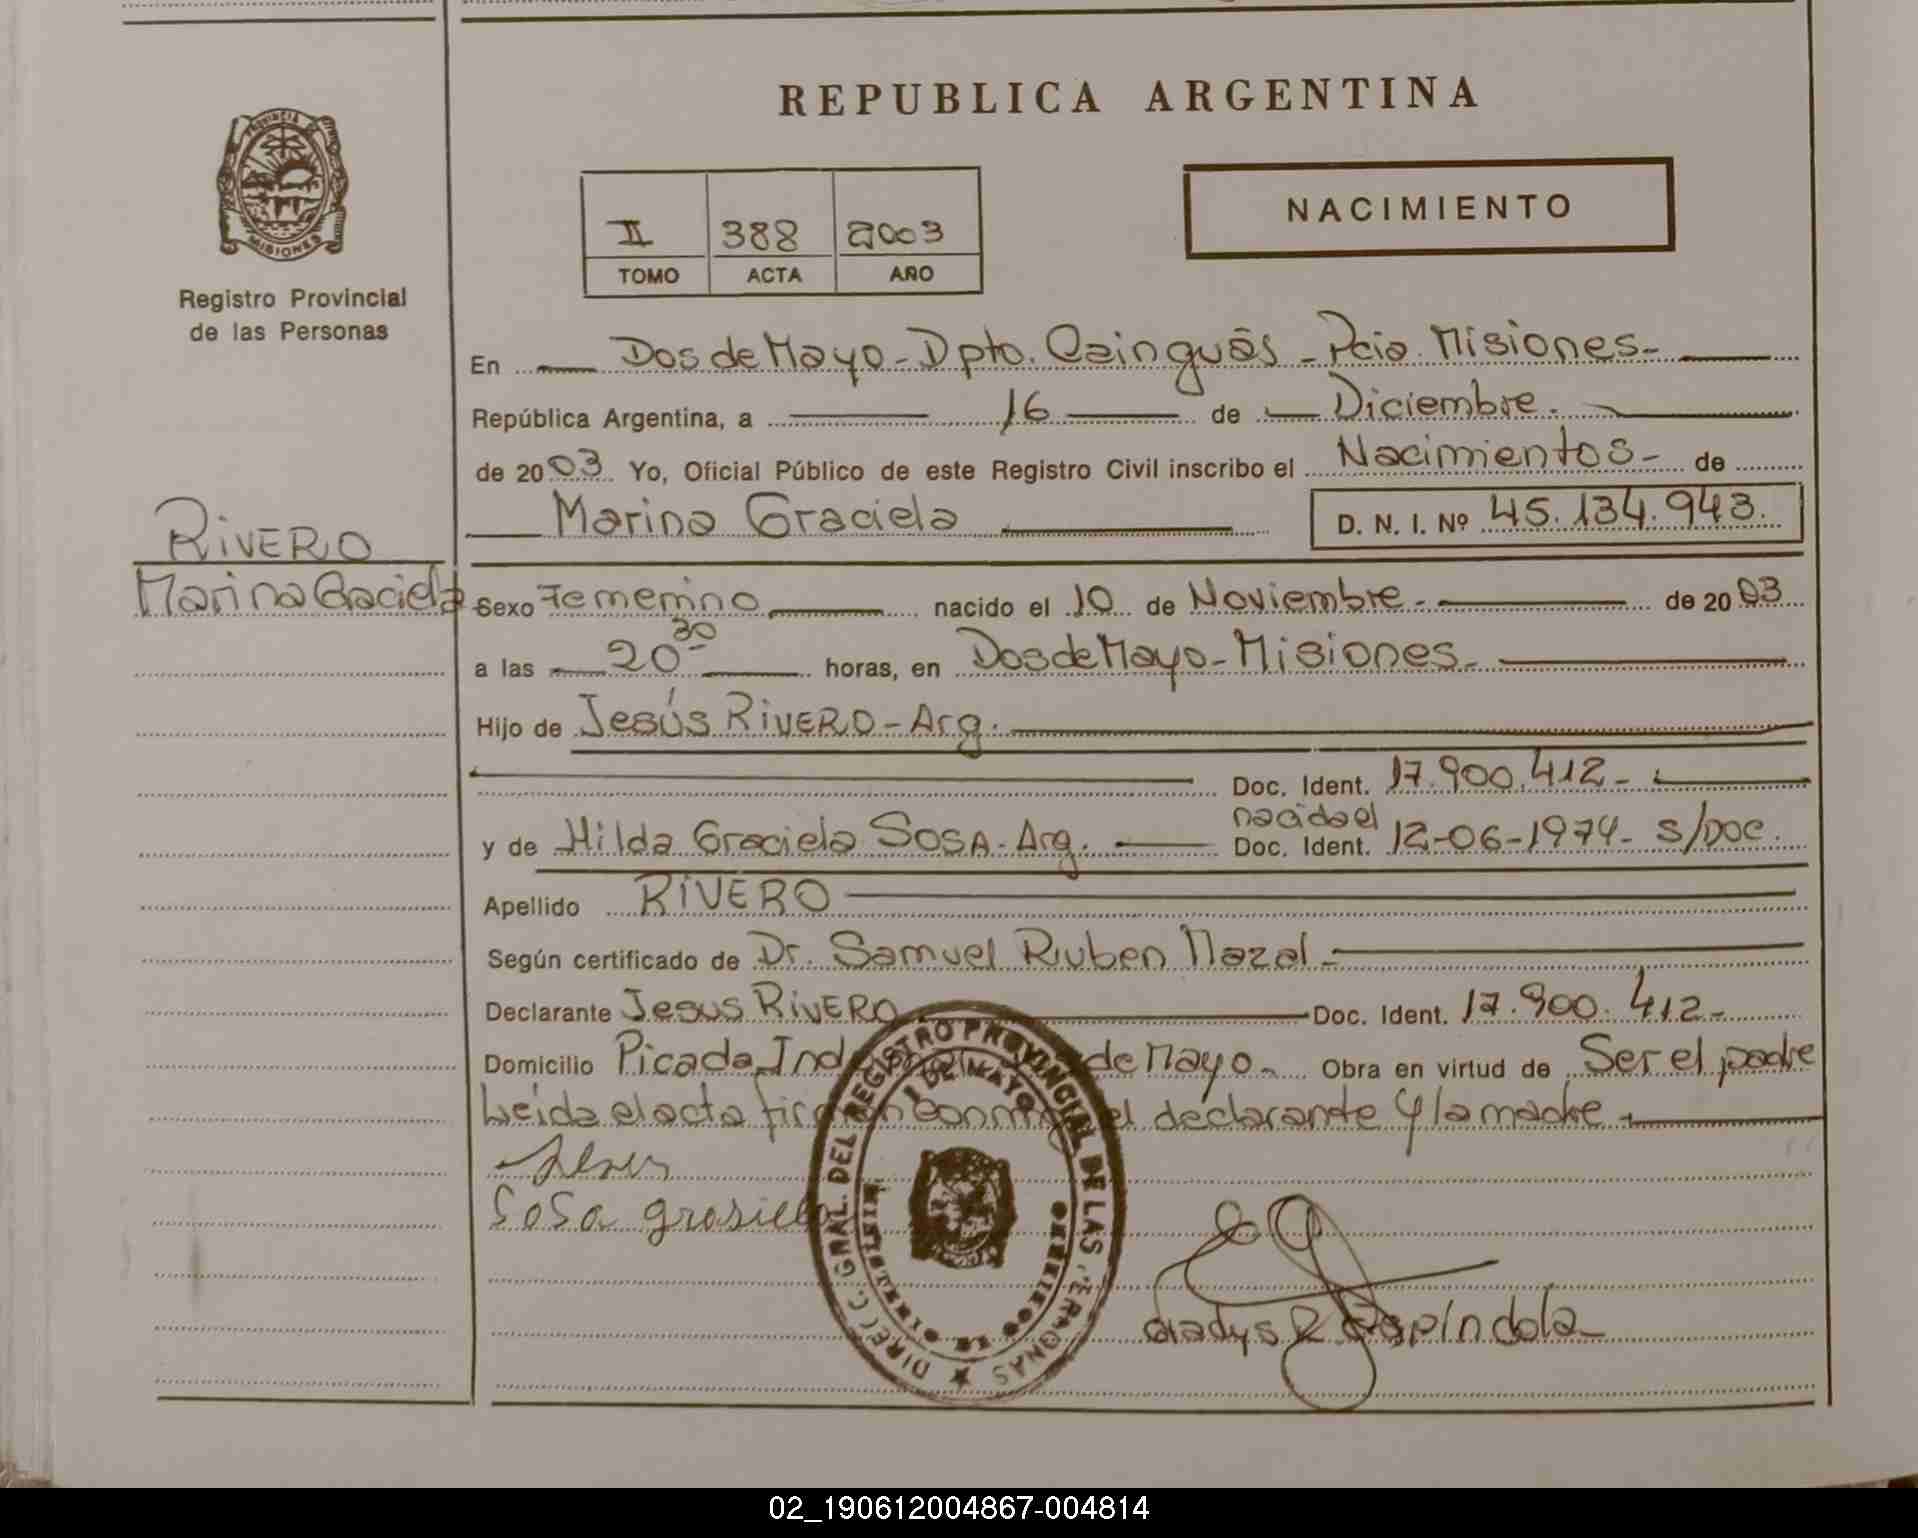 REPUBLICA ARGENTINA
PROVINCIA DE
MISIONES
Registro Provincial
de las Personas
II 388 2003
TOMO ACTA AÑO
NACIMIENTO
En Dos de Mayo - Dpto. Cainguás - Pcia. Misiones -
República Argentina, a 16 de Diciembre.
de 2003 Yo, Oficial Público de este Registro Civil inscribo el Nacimientos - de
Marina Graciela D. N. I. Nº 45.134.943.
RIVERO
Marina Graciela
Sexo Femenino nacido el 10 de Noviembre - de 2003
a las 20 30 horas, en Dos de Mayo - Misiones -
Hijo de Jesús RIVERO - Arg.
Doc. Ident. 17.900.412 -
nacida el
y de Hilda Graciela SOSA - Arg. Doc. Ident. 12-06-1974 - S/DOC.
Apellido RIVERO
Según certificado de Dr. Samuel Ruben Nazal -
Declarante Jesus RIVERO Doc. Ident. 17.900.412 -
Domicilio Picada de Mayo - Obra en virtud de Ser el padre
Leida el acta firman conmigo el declarante y la madre -
Sosa grasiela
DIRECC. GRAL. DEL REGISTRO PROVINCIAL DE LAS PERSONAS
DE MAYO
Gladys R Espindola
02_190612004867-004814